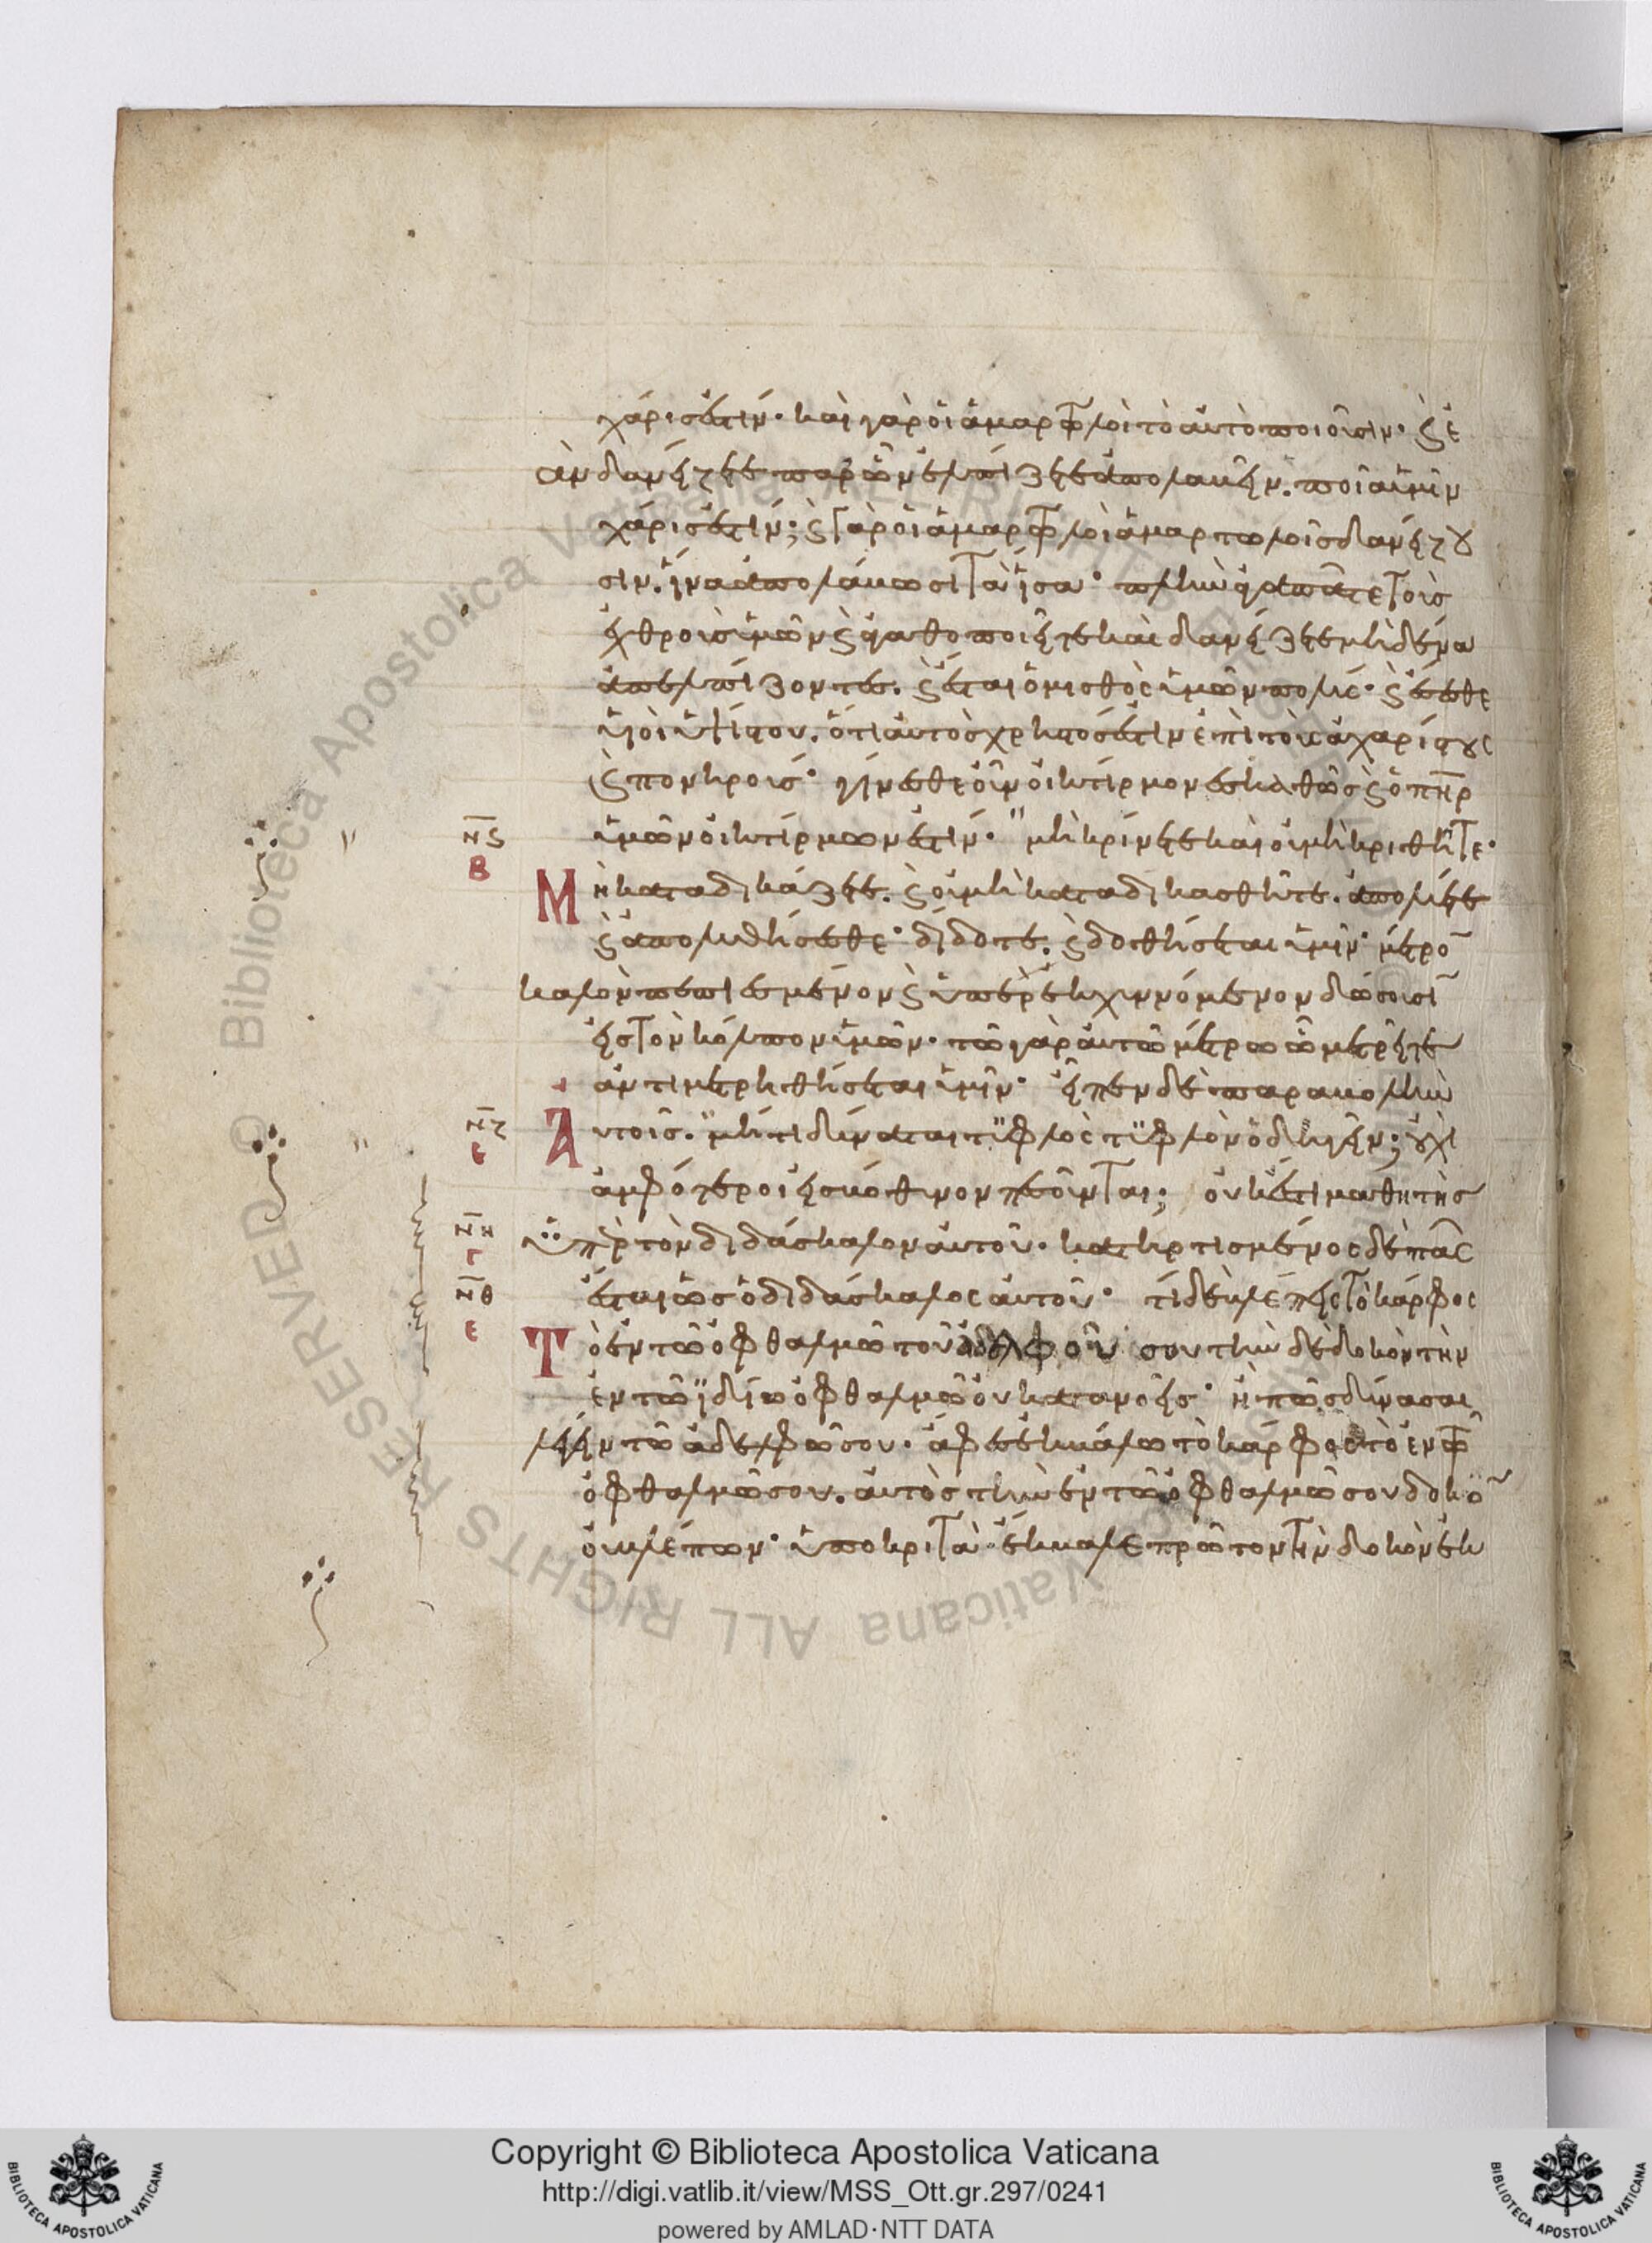 χάρις ἐστίν· καὶ γὰρ οἱ ἁμαρτωλοὶ τὸ αὐτὸ ποιοῦσιν· ϗ ἐ
ὰν δανείζετε παρ ὧν ἐλπίζετε ἀπολαυεῖν. ποία ὑμῖν
χάρις ἐστίν; ϗ γὰρ οἱ ἁμαρτωλοὶ ἁμαρτωλοῖς δανείζου
σιν. ἵνα ἀπολάυωσι τὰ ἴσα· πλὴν ἀγαπᾶτε τοὺς
ἐχθροὺς ὑμῶν ϗ ἀγαθοποιεῖτε καὶ δανείζετε μηδένα
ἀπελπίζοντες. ϗ ἔσται ὁ μισθὸς ὑμῶν πολύς· ϗ ἔσεσθε
ὑιοὶ ὑψίστου. ὅτι αὐτὸς χρηστός ἐστιν ἐπὶ τοὺς ἀχαρίστους
ϗ πονηρούς· γίνεσθε οὖν οἰκτίρμονες καθὼς ϗ ὁ πηρ
ὑμῶν οἰκτίρμων ἐστίν· μὴ κρίνετε καὶ οὐ μὴ κριθῆτε·
Μὴ καταδικάζετε. ϗ οὐ μὴ καταδικασθῆτε. ἀπολύετε
ϗ ἀπολυθήσεσθε· δίδοτε. ϗ δοθήσεται ὑμῖν· μέτρο
καλὸν πεπιεσμένον ϗ ὑπερεκχυννόμενον δώσουσι
εἰς τὸν κόλπον ὑμῶν· τῶ γὰρ αὐτῶ μέτρω ὧ μετρεῖτε
ἀντιμετρηθήσεται ὑμῖν· εἶπεν δὲ παραβολὴν
Αὐτοῖς. μήτι δύναται τϋφλὸς τϋφλὸν ὁδηγεῖν; οὐχὶ
ἀμφότεροι εἰς βόθυνον πεσοῦνται; οὐκ ἔστι μαθητὴς
ὑπὲρ τὸν διδάσκαλον αὐτοῦ. κατηρτισμένος δὲ πᾶς
ἔσται ὡς ὁ διδάσκαλος αὐτοῦ· τί δὲ βλέπεις τὸ κάρφος
Τὸ ἐν τῶ ὀφθαλμῶ τοῦ ἀδελφοῦ σου τὴν δὲ δοκὸν τὴν
ἐν τῶ ἰδίω ὀφθαλμῶ οὐ κατανοεῖς· ἢ πῶς δύνασαι
λέγειν τῶ ἀδελφῶ σου. ἄφες ἐκβάλω τὸ κάρφος τὸ ἐν τῶ
ὀφθαλμῶ σου. αὐτὸς τὴν ἐν τῶ ὀφθαλμῶ σου δοκὸ
οὐ βλέπων· ὑποκριτὰ ἔκβαλε πρῶτον τὴν δοκὸν ἐκ
νϛ
β
νζ
ε
νη
γ
νθ
ε
Copyright © Biblioteca Apostolica Vaticana
http://digi.vatlib.it/view/MSS_Ott.gr.297/0241
powered by AMLAD·NTT DATA
BIBLIOTECA APOSTOLICA VATICANA
BIBLIOTECA APOSTOLICA VATICANA
© Biblioteca Apostolica Vaticana ALL RIGHTS RESERVED